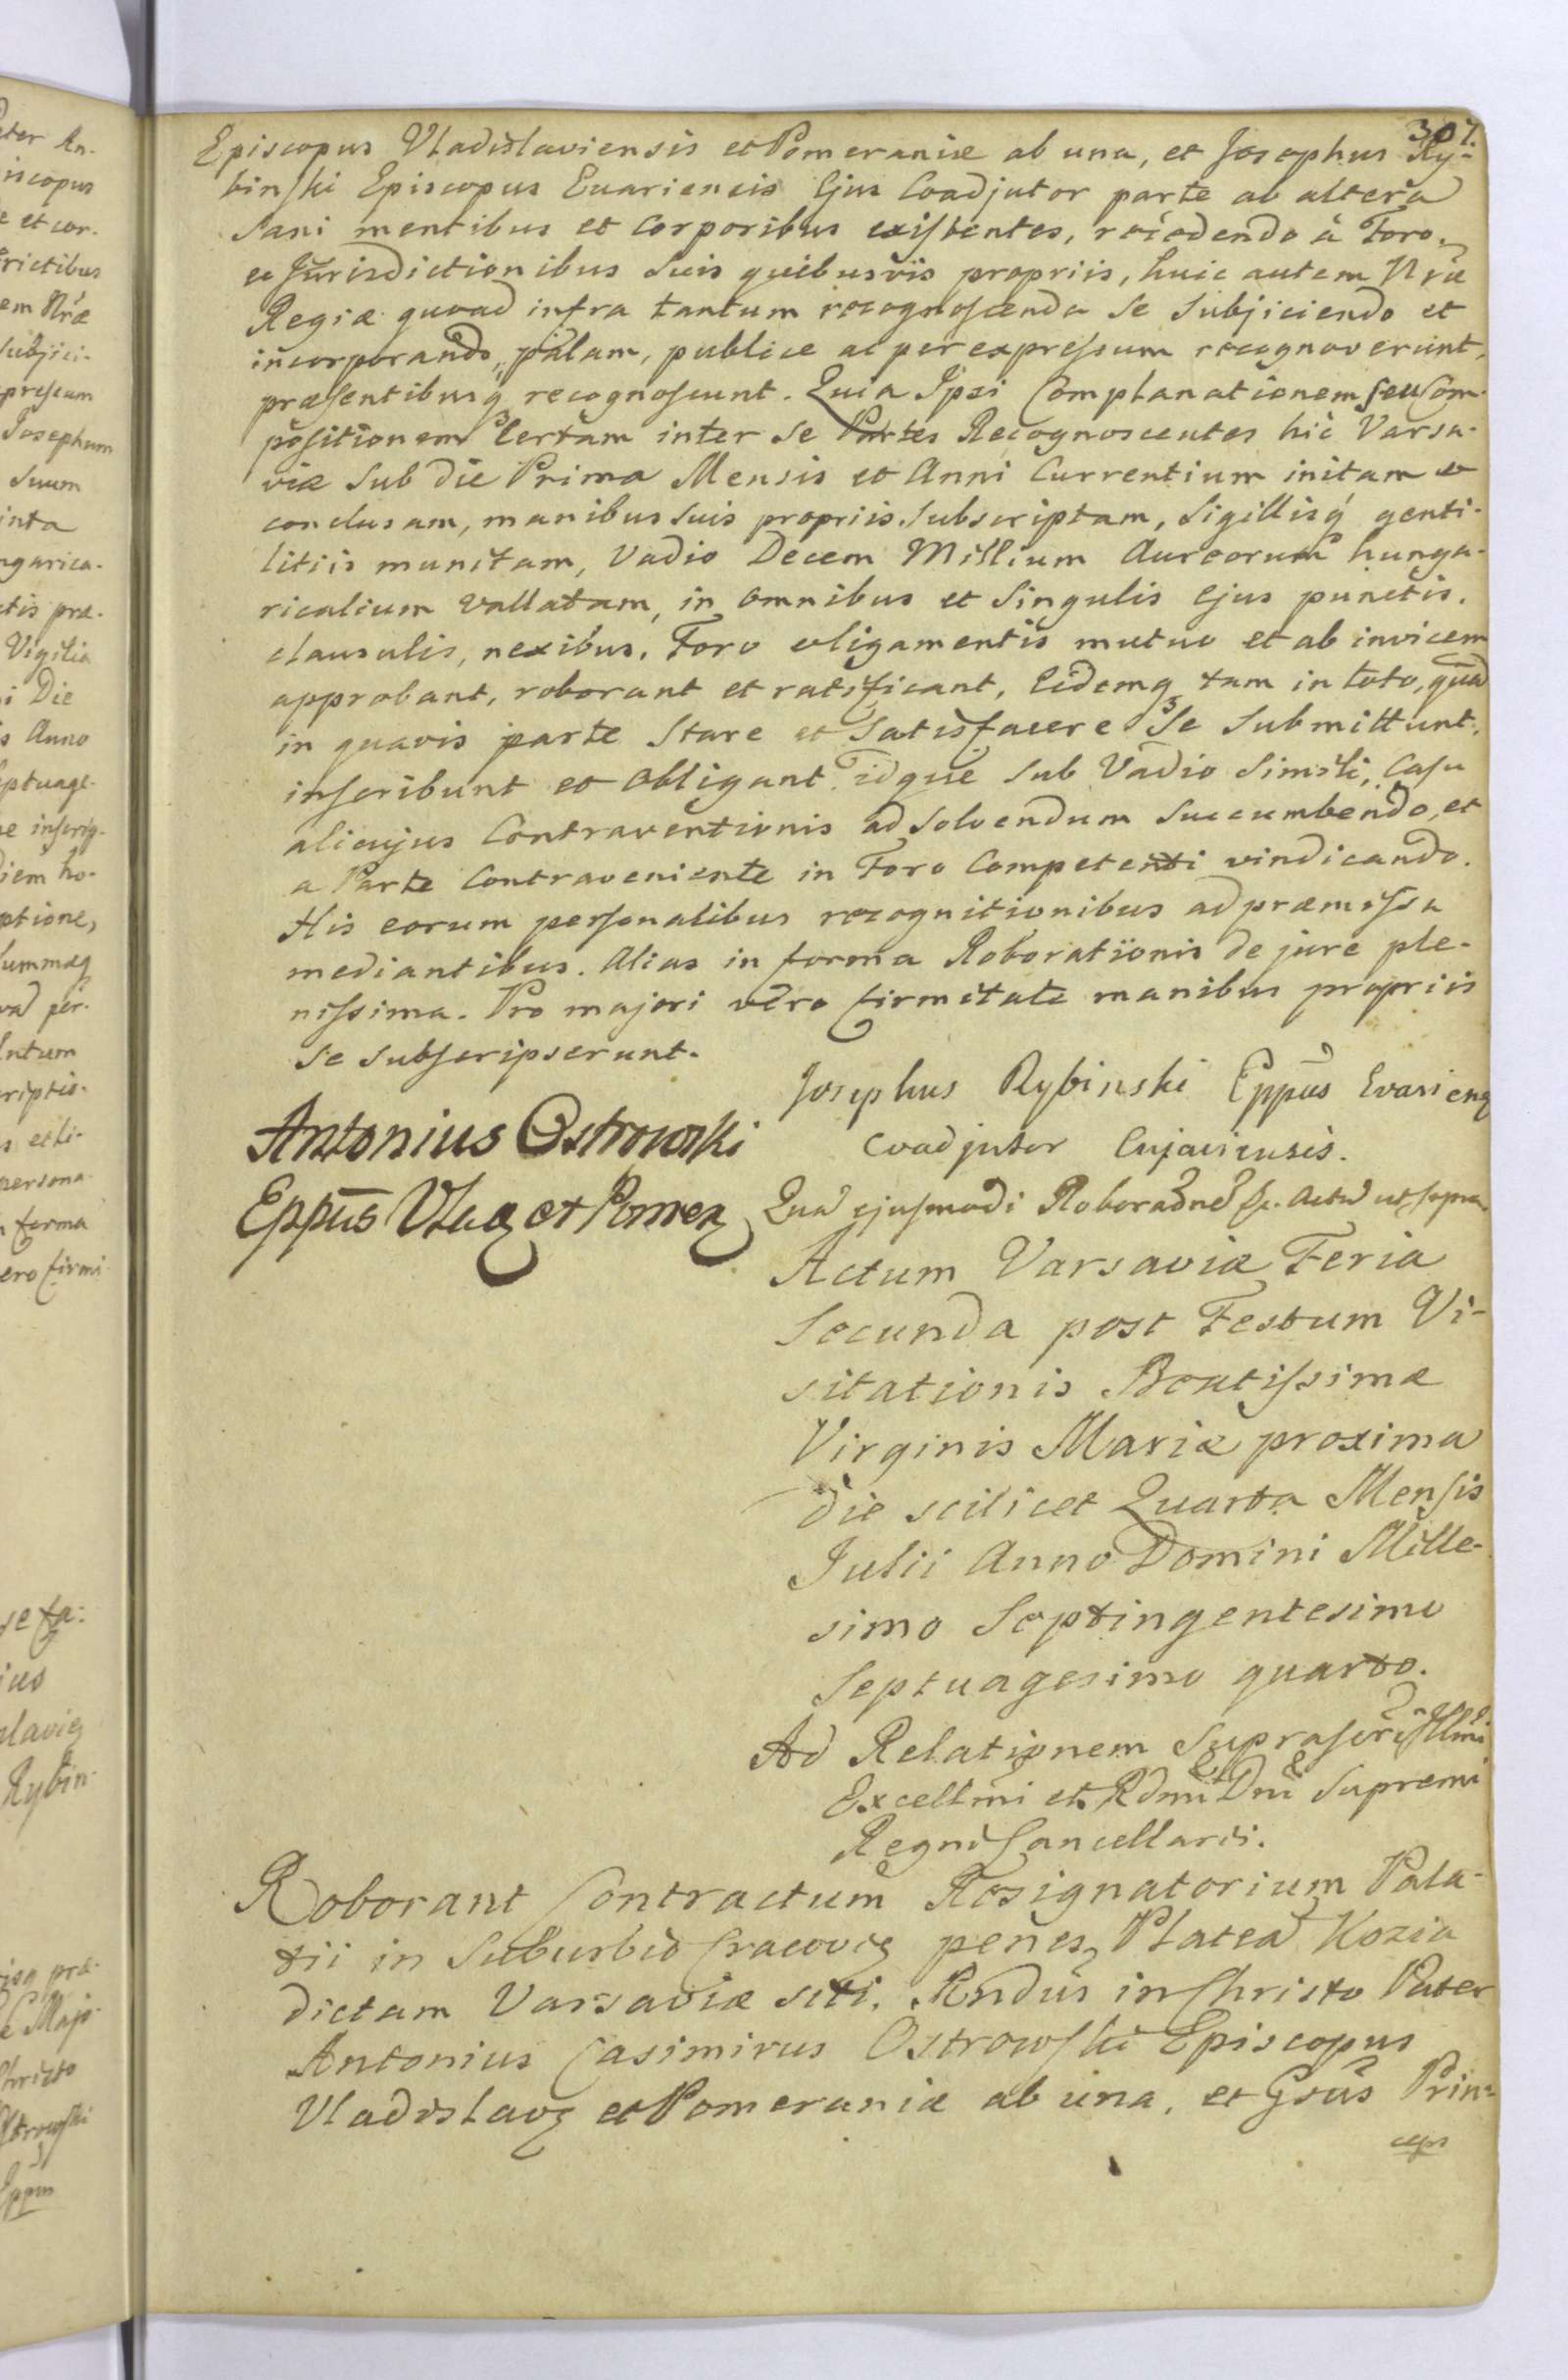 307.
Episcopus Vladislaviensis et Pomeraniæ ab una, et Josephus Ry-
binski Episcopus Evariensis Ejus Coadjutor parte ab altera
Sani mentibus et Corporibus existentes, recedendo à Foro,
et Jurisdictionibus Suis quibusvis propriis, huic autem Nræ
Regiæ quoad infra tantum recognoscenda se Subjiciendo et
incorporando, palam, publice ac per expressum recognoverunt,
præsentibusq recognoscunt. Quia Ipsi Complanationem seu Com-
positionem Certam inter Se Partes Recognoscentes hic Varsa-
viæ Sub die Prima Mensis et Anni Currentium initam et
conclusam, manibus suis propriis Subscriptam, Sigillisq genti-
litiis munitam, Vadio Decem Millium Aureorum hunga-
ricalium Vallatam, in omnibus et Singulis Ejus punctis,
clausulis, nexibus, Foro oligamentis mutuo et ab invicem
approbant, roborant et ratificant, Eidemq tam in toto, quā
in quavis parte Stare et Satisfacere Se Submittunt,
inscribunt et Obligant idque Sub Vadio Simili, Casu
alicujus Contraventionis ad Solvendum Succumbendo, et
a Parte Contraveniente in Foro Competenti vindicando.
His eorum personalibus recognitionibus ad præmissa
mediantibus. Alias in forma Roborationis de jure ple-
nissima. Pro majori vero firmitate manibus propriis
se subscripserunt.
Josephus Rybinski Eppūs Evarieng
Coadjutor Cujaviensis.
Antonius Ostrowski
Eppūs Vlaꝫ et Pomerꝫ
Quā ejusmodi Roboraōnē &c. Actū ut supra
Actum Varsaviæ Feria
Secunda post Festum Vi-
sitationis Beatissimæ
Virginis Mariæ proxima
die scilicet Quarta Mensis
Julii Anno Domini Mille-
simo Septingentesimo
Septuagesimo quarto.
Ad Relationem Suprascri Illmi
Excellmi et Rdmi Dni Supremi
Regni Cancellarii.
Roborant Contractum Resignatorium Pala-
tii in Suburbio Cracovię penes Plateā Kozia
dictam Varsaviæ siti. Rndūs in Christo Pater
Antonius Casimirus Ostrowski Episcopus
Vladislavꝫ et Pomeraniæ ab una, et Gsūs Prin-
ceps